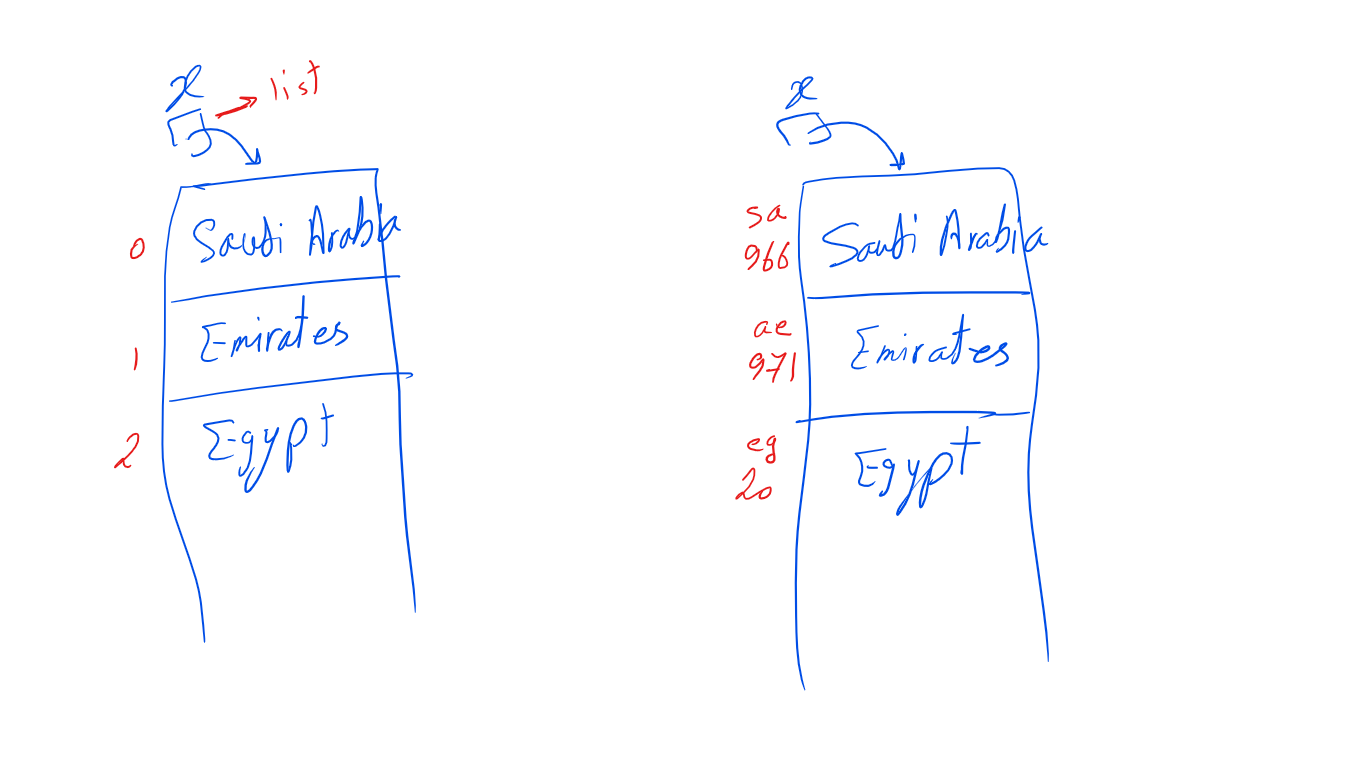 x
list
0 Saudi Arabia
1 Emirates
2 Egypt
x
sa
966 Saudi Arabia
ae
971 Emirates
eg
20 Egypt